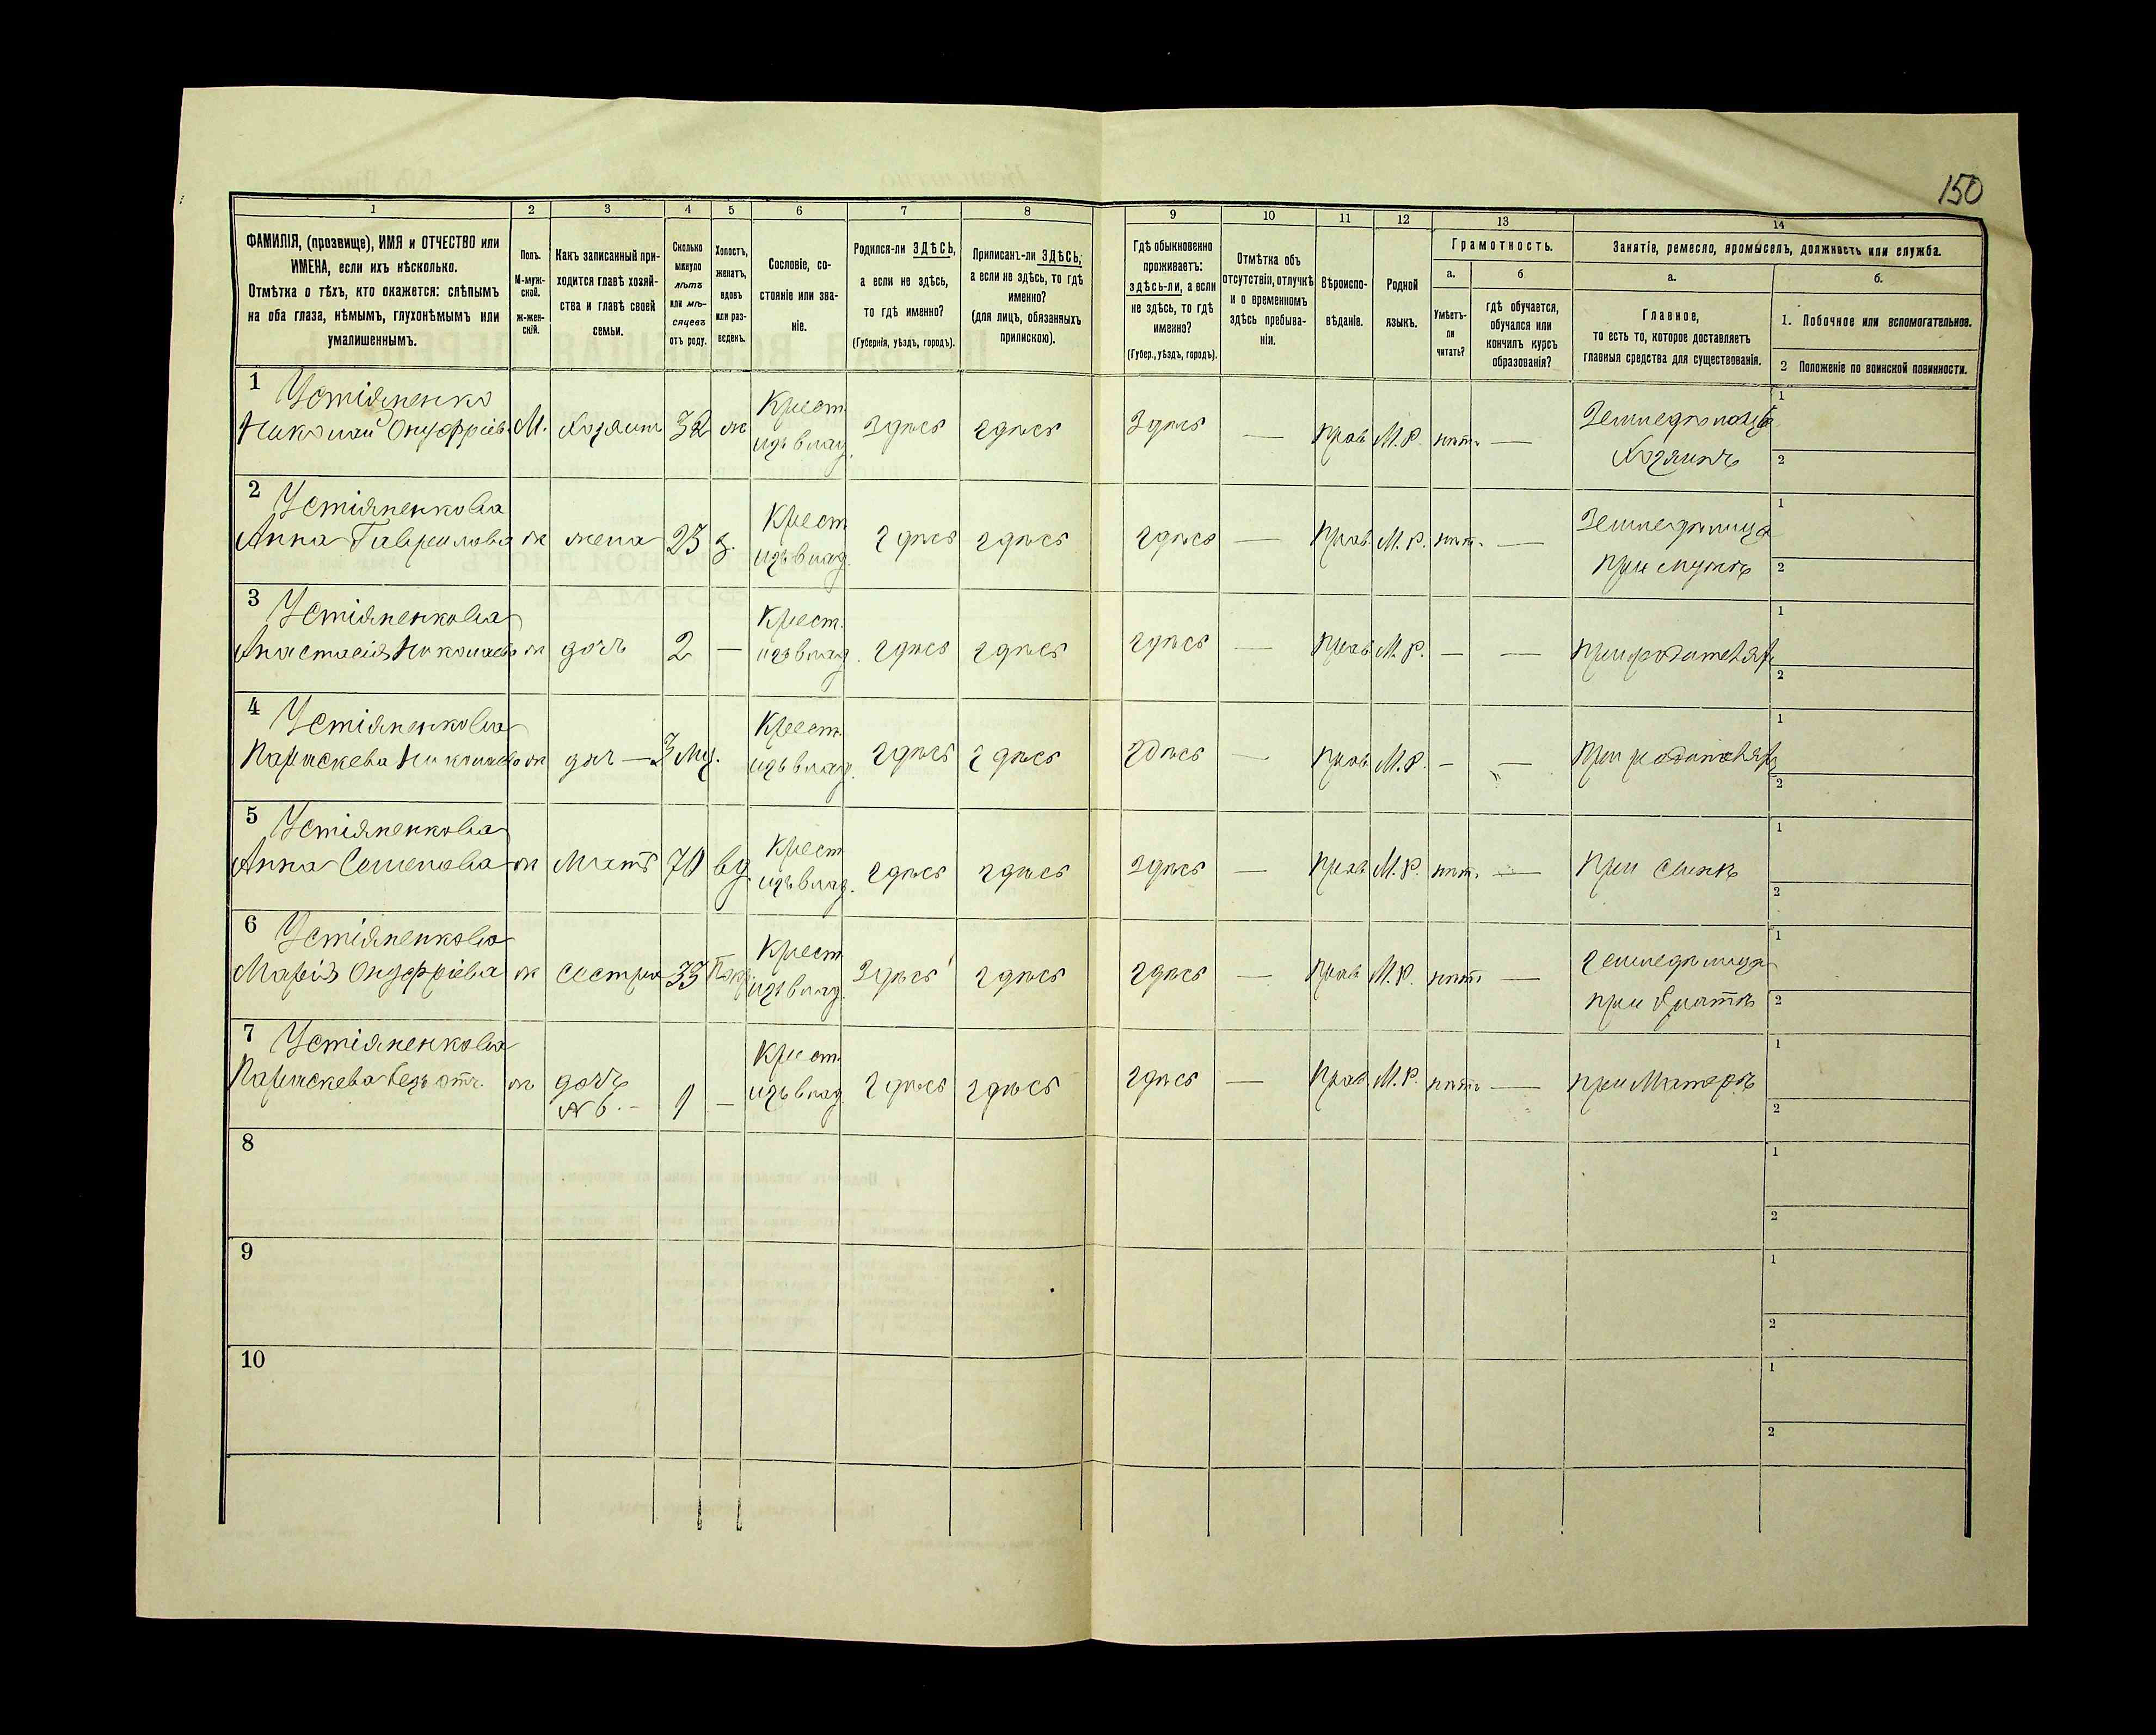 150
1 2 3 4 5 6 7 8 9 10 11 12 13 14
ФАМИЛІЯ, (прозвище), ИМЯ и ОТЧЕСТВО или
ИМЕНА, если ихъ нѣсколько.
Отмѣтка о тѣхъ, кто окажется: слѣпымъ
на оба глаза, нѣмымъ, глухонѣмымъ или
умалишеннымъ.
Полъ.
М-муж-
ской.
ж-жен-
скій.
Какъ записанный при-
ходится главѣ хозяй-
ства и главѣ своей
семьи.
Сколько
минуло
лѣтъ
или мѣ-
сяцевъ
отъ роду.
Холостъ,
женатъ,
вдовъ
или раз-
веденъ.
Сословіе, со-
стояніе или зва-
ніе.
Родился-ли ЗДѢСЬ,
а если не здѣсь,
то гдѣ именно?
(Губернія, уѣздъ, городъ).
Приписанъ-ли ЗДѢСЬ,
а если не здѣсь, то гдѣ
именно?
(для лицъ, обязанныхъ
припискою).
Гдѣ обыкновенно
проживаетъ:
здѣсь-ли, а если
не здѣсь, то гдѣ
именно?
(Губер., уѣздъ, городъ).
Отмѣтка объ
отсутствіи, отлучкѣ
и о временномъ
здѣсь пребыва-
ніи.
Вѣроиспо-
вѣданіе.
Родной
языкъ.
Грамотность.
а.
Умѣетъ-
ли
читать?
б
гдѣ обучается,
обучался или
кончилъ курсъ
образованія?
Занятіе, ремесло, промыселъ, должность или служба.
а.
Главное,
то есть то, которое доставляетъ
главныя средства для существованія.
б.
1. Побочное или вспомогательное.
2 Положеніе по воинской повинности.
1 Устіяненко Крест. Земледѣлецъ 1
Николай Онуфріев. М. Хозяинъ 32 ж изъ влад. Здѣсь здѣсь Здѣсь — Прав М.Р. нѣтъ —
Хозяинъ 2
2 Устіяненкова Крест Земледѣлица 1
Анна Гавриловна ж жена 25 з. изъ влад. здѣсь здѣсь здѣсь — Прав. М.Р. нѣт. —
при мужѣ 2
3 Устіяненкова Крест. 1
Анастасія Николаев ж дочь 2 — изъ влад. здѣсь здѣсь здѣсь — Прав М.Р. — — при родителях
2
4 Устіяненкова Крест. 1
Параскева Николаев ж доч — 3 Мц. изъ влад. здѣсь здѣсь здѣсь — Прав М.Р. — — При родителях
2
5 Устіяненкова Крест 1
Анна Семенова ж Мать 70 вд изъ влад. здѣсь здѣсь здѣсь — Прав М.Р. нѣт. — При сынѣ
2
6 Устіяненкова Крест земледѣлица 1
Марія Онуфріева ж сестра 33 изъ влад. Здѣсь здѣсь здѣсь — Прав М.Р. нѣтъ —
при братѣ 2
7 Устіяненкова Крест 1
Параскева безъ отч. ж дочь № 6. — 1 — изъ влад здѣсь здѣсь здѣсь — Прав. М.Р. нѣтъ — при Матерѣ
2
8 1
2
9 1
2
10 1
2